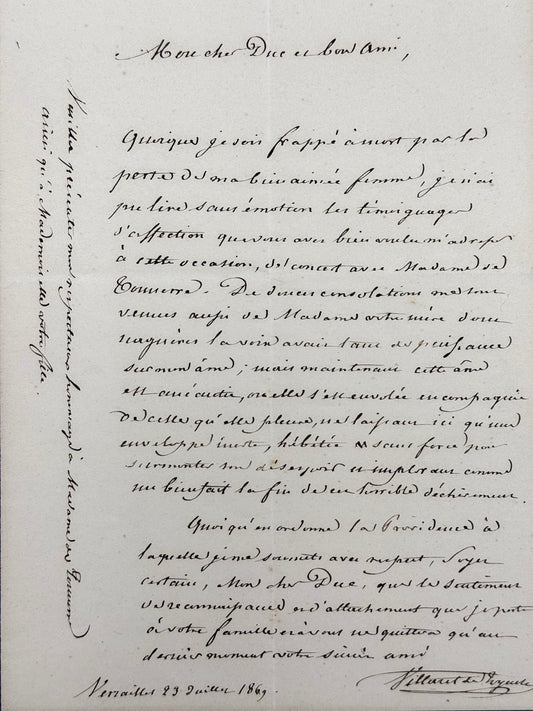 Mon cher Duc et bon ami,
Quoique je sois frappé à mort par la
perte de ma bien aimée femme, je n'ai
pu lire sans émotion les témoignages
d'affection que vous avez bien voulu m'adresser
à cette occasion, de concert avec Madame de
Tonnerre. De douces consolations me sont
venues aussi de Madame votre mère dont
naguères la voix avait tant de puissance
sur mon âme ; mais maintenant cette âme
est anéantie, ou elle s'est envolée en compagnie
de celle qu'elle pleure, ne laissant ici qu'une
enveloppe inerte, hébétée & sans force pour
surmonter son désespoir et implorant comme
un bienfait la fin de ce terrible déchirement.
Quoi qu'en ordonne la Providence à
laquelle je me soumets avec respect, soyez
certain, Mon cher Duc, que le sentiment
de reconnaissance et d'attachement que je porte
à votre famille et à vous ne quittera qu'au
dernier moment votre sincère ami
Villaret de
Versailles 23 Juillet 1869
Veuillez présenter mes respectueux hommages à Madame de Tonnerre
ainsi qu'à Mademoiselle votre fille.